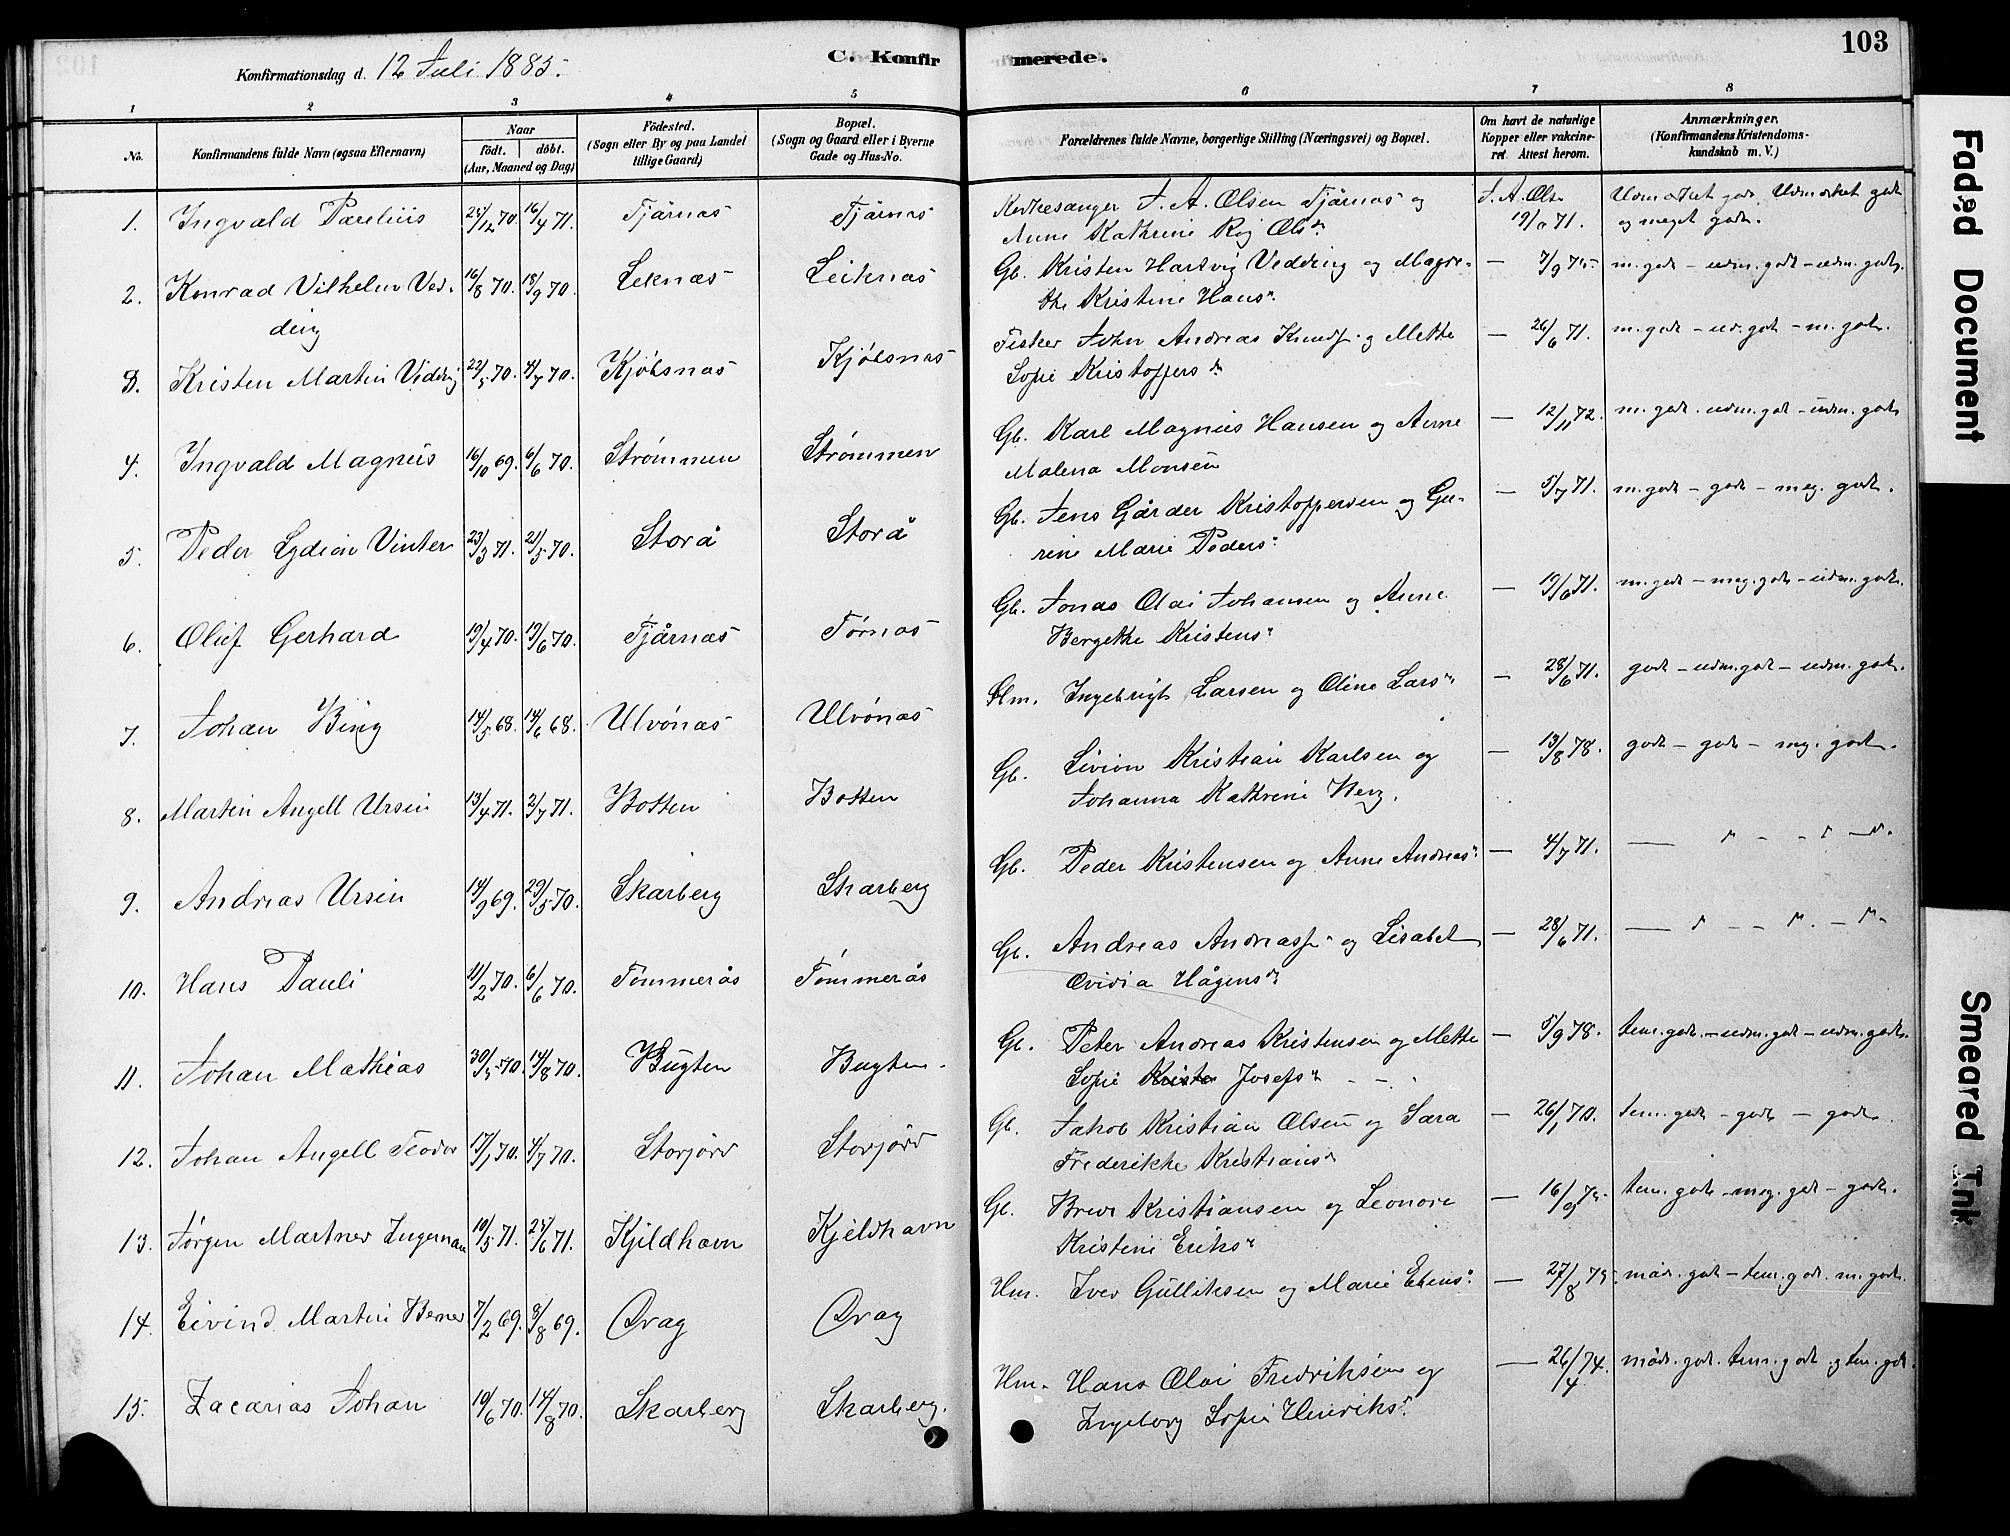 103
Konfirmationsdag d. 12 Juli 1885.
C. Konfirmerede.
1 2 3 4 5 6 7 8
No.
Konfirmandens fulde Navn (ogsaa Efternavn)
Naar
født. døbt.
(Aar, Maaned og Dag)
Fødested.
(Sogn eller By og paa Landet
tillige Gaard)
Bopæl.
(Sogn og Gaard eller i Byerne
Gade og Hus-No.
Forældrenes fulde Navne, borgerlige Stilling (Næringsvei) og Bopæl.
Om havt de naturlige
Kopper eller vakcineret. Attest herom.
Anmærkninger.
(Konfirmandens Kristendomskundskab m. V.)
1. Ingvald Parelius 16/4 71. Tjárnæs Tjárnæs Kirkesanger J. A. Olsen Tjárnæs og
Anne Kathrine Olsdr.
Udmærket godt, Udmærket godt
og meget godt.
2. Konrad Vilhelm Vedding 16/8 70. 18/9 70. Leknæs Leiknæs Gb. Kristen Hartvig Vedding og Magrethe Kristine Hansdr. m. godt - udm. godt - udm. godt.
3. Kristen Martin Vedding 22/5 70. 4/7 70. Kjøbsnæs Kjøbsnæs Fisker John Andreas Knuds. og Mette
Sofie Kristoffersdr. — 26/6 71. m. godt - ud. godt - m. godt.
4. Ingvald Magnus 16/10 69. 6/6 70. Strømmen Strømmen Gb. Karl Magnus Hansen og Anne
Malena Monsen — 12/11 72. m. godt - udm. godt - udm. godt
5. Peder Lydion Vinter 23/3 71. 21/5 70. Storå Storå Gb. Jens Gårder Kristoffersen og Gurine Marie Pedersdr. — 5/7 71. m. godt - godt - meg. godt.
6. Oluf Gerhard 19/4 70. 19/6 70. Tjårnæs Tørnæs Gb. Jonas Olai Johansen og Anne
Bergethe Kristensdr. — 19/6 71. m. godt - meg. godt - udm. godt.
7. Johan Bing 14/5 68. 14/6 68. Ulvønæs Ulvønæs Ingebrigt Larsen og Oline Larsdr. — 28/6 71. godt - udm. godt - udm. godt.
8. Martin Angell Ursin 13/4 71. 2/7 71. Botten Botten Gb. Livion Kristian Karlsen og
Johanna Kathrine Berg. — 13/8 78. godt - godt - meg. godt.
9. Andreas Ursin 14/9 69. 29/5 70. Skarberg Skarberg Gb. Peder Kristensen og Anne Andreasdr. — 4/7 71.
10. Hans Pauli 11/2 70. 6/6 70. Tømmerås Tømmerås Gb. Andreas Andreass. og Lisabet
Ovidia Hågensdr. — 28/6 71.
11. Johan Mathias 30/5 70. 14/8 70. Bugten Bugten. Gb. Peter Andreas Kristensen og Mette
Sofie Josefsdr. — 5/9 78. tem. godt - udm. godt - udm. godt.
12. Johan Angell Teodor 17/1 70. 4/7 70. Storjord Storjord Gb. Jakob Kristian Olsen og Sara
Frederikke Kristiansdr. — 26/1 70. tem. godt - godt - godt
13. Jørgen Martner Ingeman 10/5 71. 25/6 71. Kjeldhavn Kjeldhavn Gb. Brevi Kristiansen og Leonore
Kristine Eriksdr. tem. godt - meg. godt - godt.
14. Eivind Martin Berner 7/2 69. 8/8 69. Drag Drag Hm. Iver Gullitsen og Marie Ebensdr. — 27/8 75. måd. godt - tem. godt. m. godt.
15. Zacarias Johan 19/6 70. 14/8 70. Skarberg Skarberg. Hm. Hans Olai Fredriksen og
Ingeborg Sofie Henriksdr. — 26/4 74. måd. godt. tem. godt og tem. godt.
Faded Document
Smeared Ink